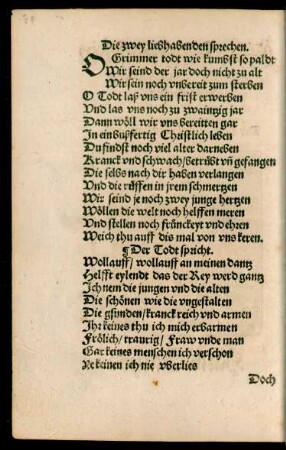 Die zwey liebhabenden sprechen.
O Grimmer todt wie kumbst so paldt
Wir seind der jar doch nicht zu alt
Wir sein noch vnbereit zum sterben
O Todt laß vns ein frist erwerben
Vnd las vns noch zu zwaintzig jar
Dann wöll wir vns bereitten gar
In ein bußfertig Christlich leben
Du findst noch viel alter darneben
Kranck vnd schwach/ betrübt vñ gefangen
Die selbs nach dir haben verlangen
Vnd die rüffen in jrem schmertzen
Wir seind je noch zwey junge hertzen
Wöllen die welt noch helffen meren
Vnd stellen noch frünckeyt vnd ehren
Weich thu auff diß mal von vns keren.
¶ Der Todt spricht.
Wollauff/ wollauff an meinen dantz
Helfft eylendt das der Rey werd gantz
Ich nem die jungen vnd die alten
Die schönen wie die vngestalten
Die gsunden/ kranck reich vnd armen
Ihr keines thu ich mich erbarmen
Frölich/ traurig/ Fraw vnde man
Gar keines menschen ich verschon
Ne keinen ich nie vberlies
Doch